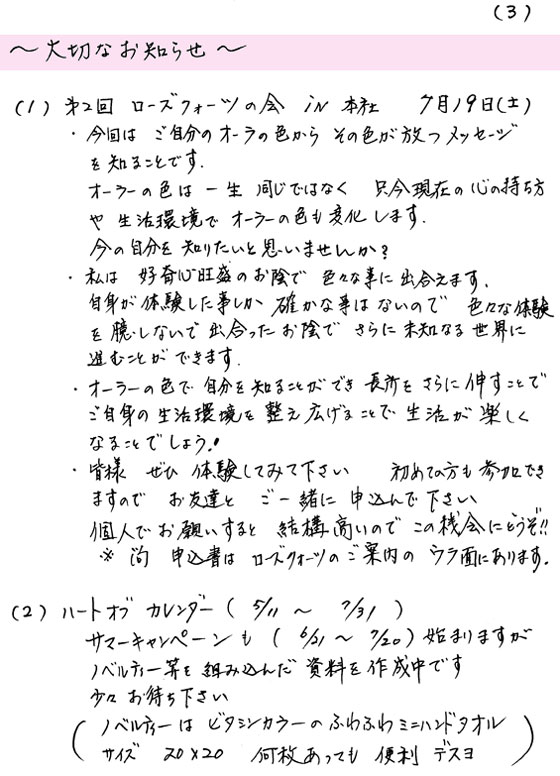 (3)
～大切なお知らせ～
(1) 第2回 ローズクォーツの会 iN 本社 7月19日(土)
・今回は ご自分のオーラの色から その色が放つメッセージ
を知ることです.
オーラーの色は 一生 同じではなく 只今現在の心の持ち方
や 生活環境で オーラーの色も変化します.
今の自分を知りたいと思いませんか?
・私は 好奇心旺盛のお陰で 色々な事に出合えます.
自身が体験した事しか 確かな事はないので 色々な体験
を臆しないで出合ったお陰で さらに未知なる世界に
進むことができます.
・オーラーの色で 自分を知ることができ 長所をさらに伸すことで
ご自身の生活環境を整え広げることで生活が楽しく
なることでしょう!
・皆様 ぜひ 体験してみて下さい 初めての方も参加でき
ますので お友達と ご一緒に申込んで下さい
個人でお願いすると 結構高いのでこの機会にどうぞ!!
※ 申込書は ローズクォーツのご案内の ウラ面にあります.
(2) ハートオブ カレンダー ( 5/11 ～ 7/31 )
サマーキャンペーンも ( 6/21 ～ 7/20 ) 始まりますが
ノベルティー等を組み込んだ 資料を作成中です
少々お待ち下さい
( ノベルティーは ビタミンカラーのふわふわミニハンドタオル
サイズ 20×20 何枚あっても 便利 デスヨ )